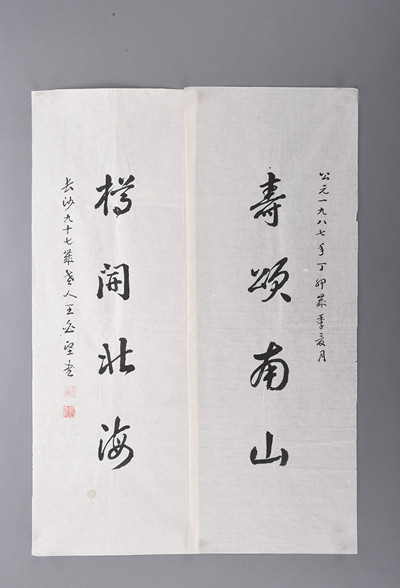 公元一九八七年丁卯岁季夏月
寿颂南山
樽开北海
长沙九十七岁老人王必坚书